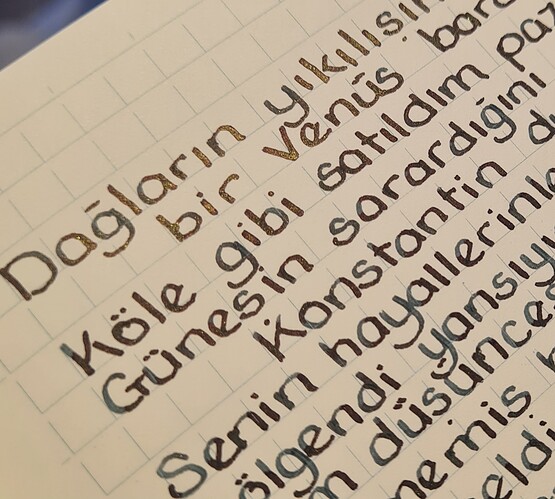 Dağların yıkılışın
bir venüs bard
Köle gibi satıldım paz
Güneşin sarardığını
Konstantin d
Senin hayallerinle
ölgendi yansıy
düşünce